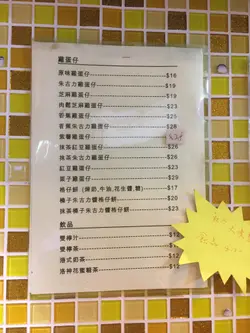 雞蛋仔
原味雞蛋仔 $16
朱古力雞蛋仔 $19
芝麻雞蛋仔 $19
肉鬆芝麻雞蛋仔 $23
香蕉雞蛋仔 $25
香蕉朱古力雞蛋仔 $28
紫薯雞蛋仔
抹茶紅豆雞蛋仔 $26
抹茶朱古力雞蛋仔 $26
紅豆雞蛋仔 $23
栗子雞蛋仔 $29
格仔餅 (煉奶,牛油,花生醬,糖) $17
榛子朱古力醬格仔餅 $20
抹茶榛子朱古力醬格仔餅 $23
飲品
雙檸汁
雙檸茶
港式奶茶 $12
洛神花蜜糖茶 $12